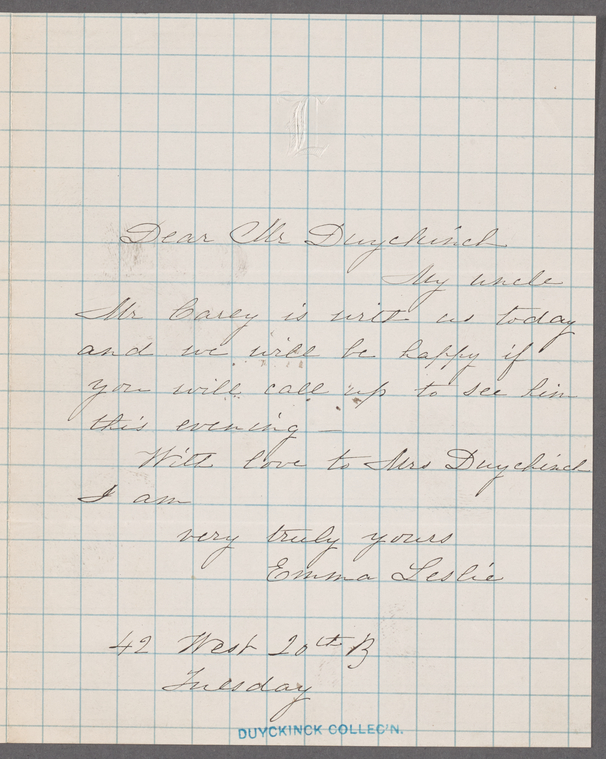 L
Dear Mr Duyckinck
My uncle
Mr Carey is with us today
and we will be happy if
you will call up to see him
this evening –
With love to Mrs Duyckinck
I am
very truly yours
Emma Leslie
42 West 20th
Tuesday
DUYCKINCK COLLEC'N.